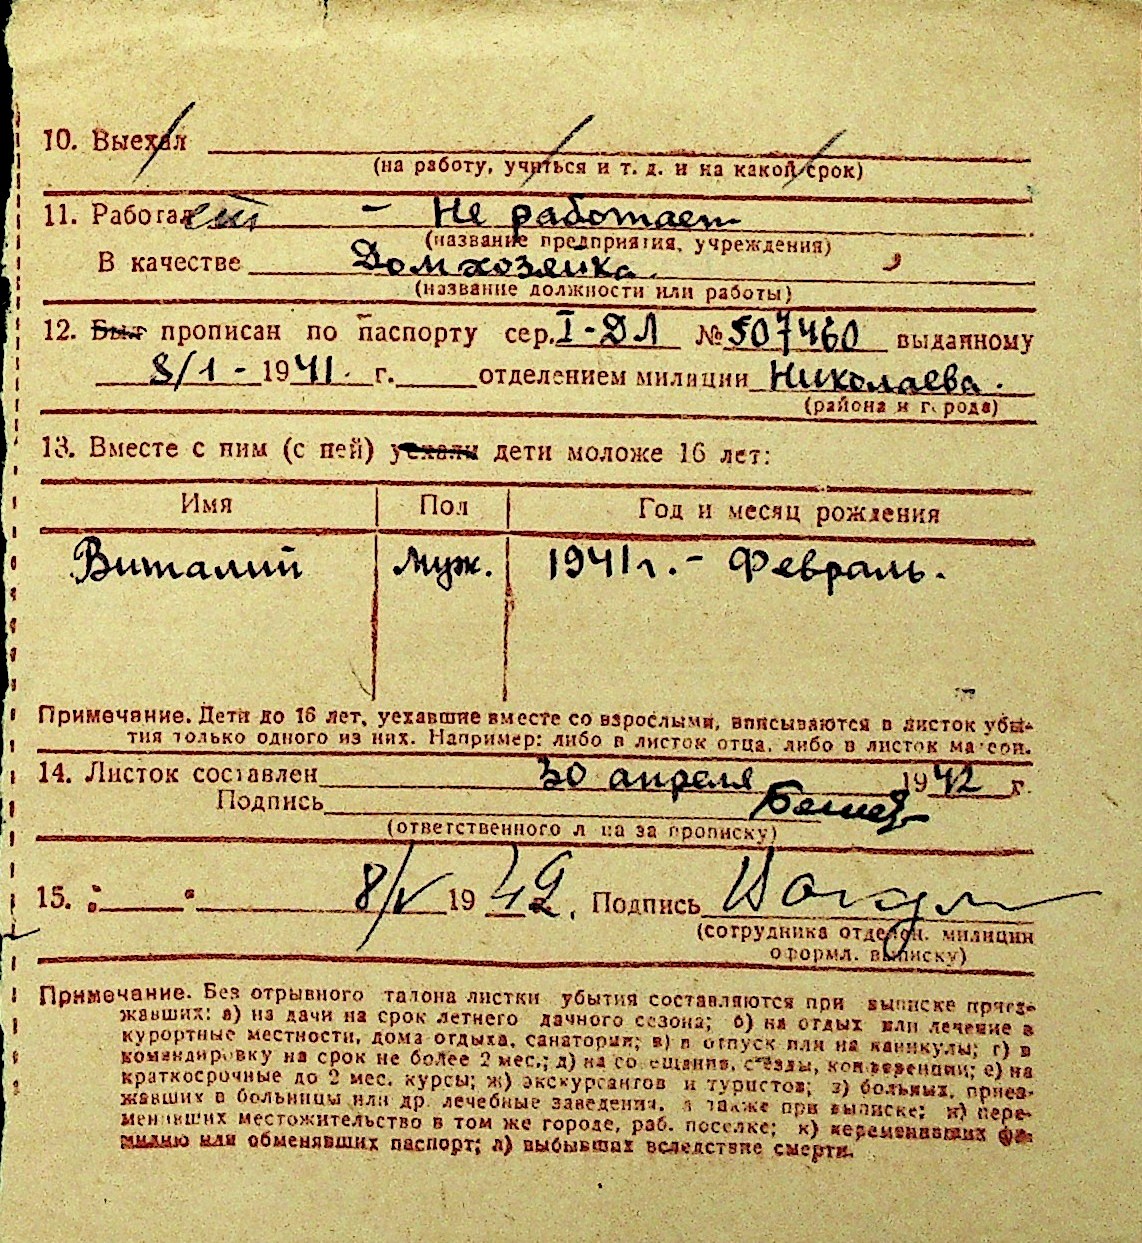 10. Выехал
(на работу, учиться и т. д. и на какой срок)
11. Работает - Не работает
(название предприятия, учреждения)
В качестве Домхозяйка.
(название должности или работы)
12. Был прописан по паспорту сер. I-ДЛ № 507460 выданному
8/1 - 1941. г. отделением милиции Николаева.
(района и города)
13. Вместе с ним (с ней) уехали дети моложе 16 лет:
Имя Пол Год и месяц рождения
Виталий Муж. 1941 г. - Февраль.
Примечание. Дети до 16 лет, уехавшие вместе со взрослыми, вписываются в листок убы-
тия только одного из них. Например: либо в листок отца, либо в листок матери.
14. Листок составлен 30 апреля 1942 г.
Подпись
(ответственного лица за прописку)
15. " " 8/V 1942. Подпись
(сотрудника отделен. милиции
оформл. выписку)
Примечание. Без отрывного талона листки убытия составляются при выписке приез-
жавших: а) на дачи на срок летнего дачного сезона; б) на отдых или лечение в
курортные местности, дома отдыха, санатории; в) в отпуск или на каникулы; г) в
командировку на срок не более 2 мес.; д) на совещания, съезды, конференции; е) на
краткосрочные до 2 мес. курсы; ж) экскурсантов и туристов; з) больных, приез-
жавших в больницы или др. лечебные заведения, а также при выписке; и) пере-
менивших местожительство в том же городе, раб. поселке; к) переменивших фа-
милию или обменявших паспорт; л) выбывших вследствие смерти.